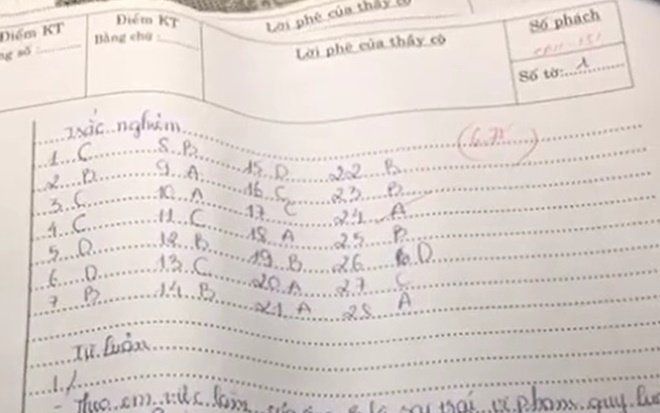 Điểm KT
Điểm KT
Lời phê của thầy cô
Số phách
số:
Bằng chữ:
Lời phê của thầy cô
Số tờ: 1
Trắc nghiệm
1 C 8 B 15 D 22 B
2 B 9 A 16 C 23 B
3 C 10 A 17 C 24 A
4 C 11 C 18 A 25 B
5 D 12 B 19 B 26 D
6 D 13 C 20 A 27 C
7 B 14 B 21 A 28 A
Tự luận
1./
- Theo em việc làm là sai trái, vi phạm quy